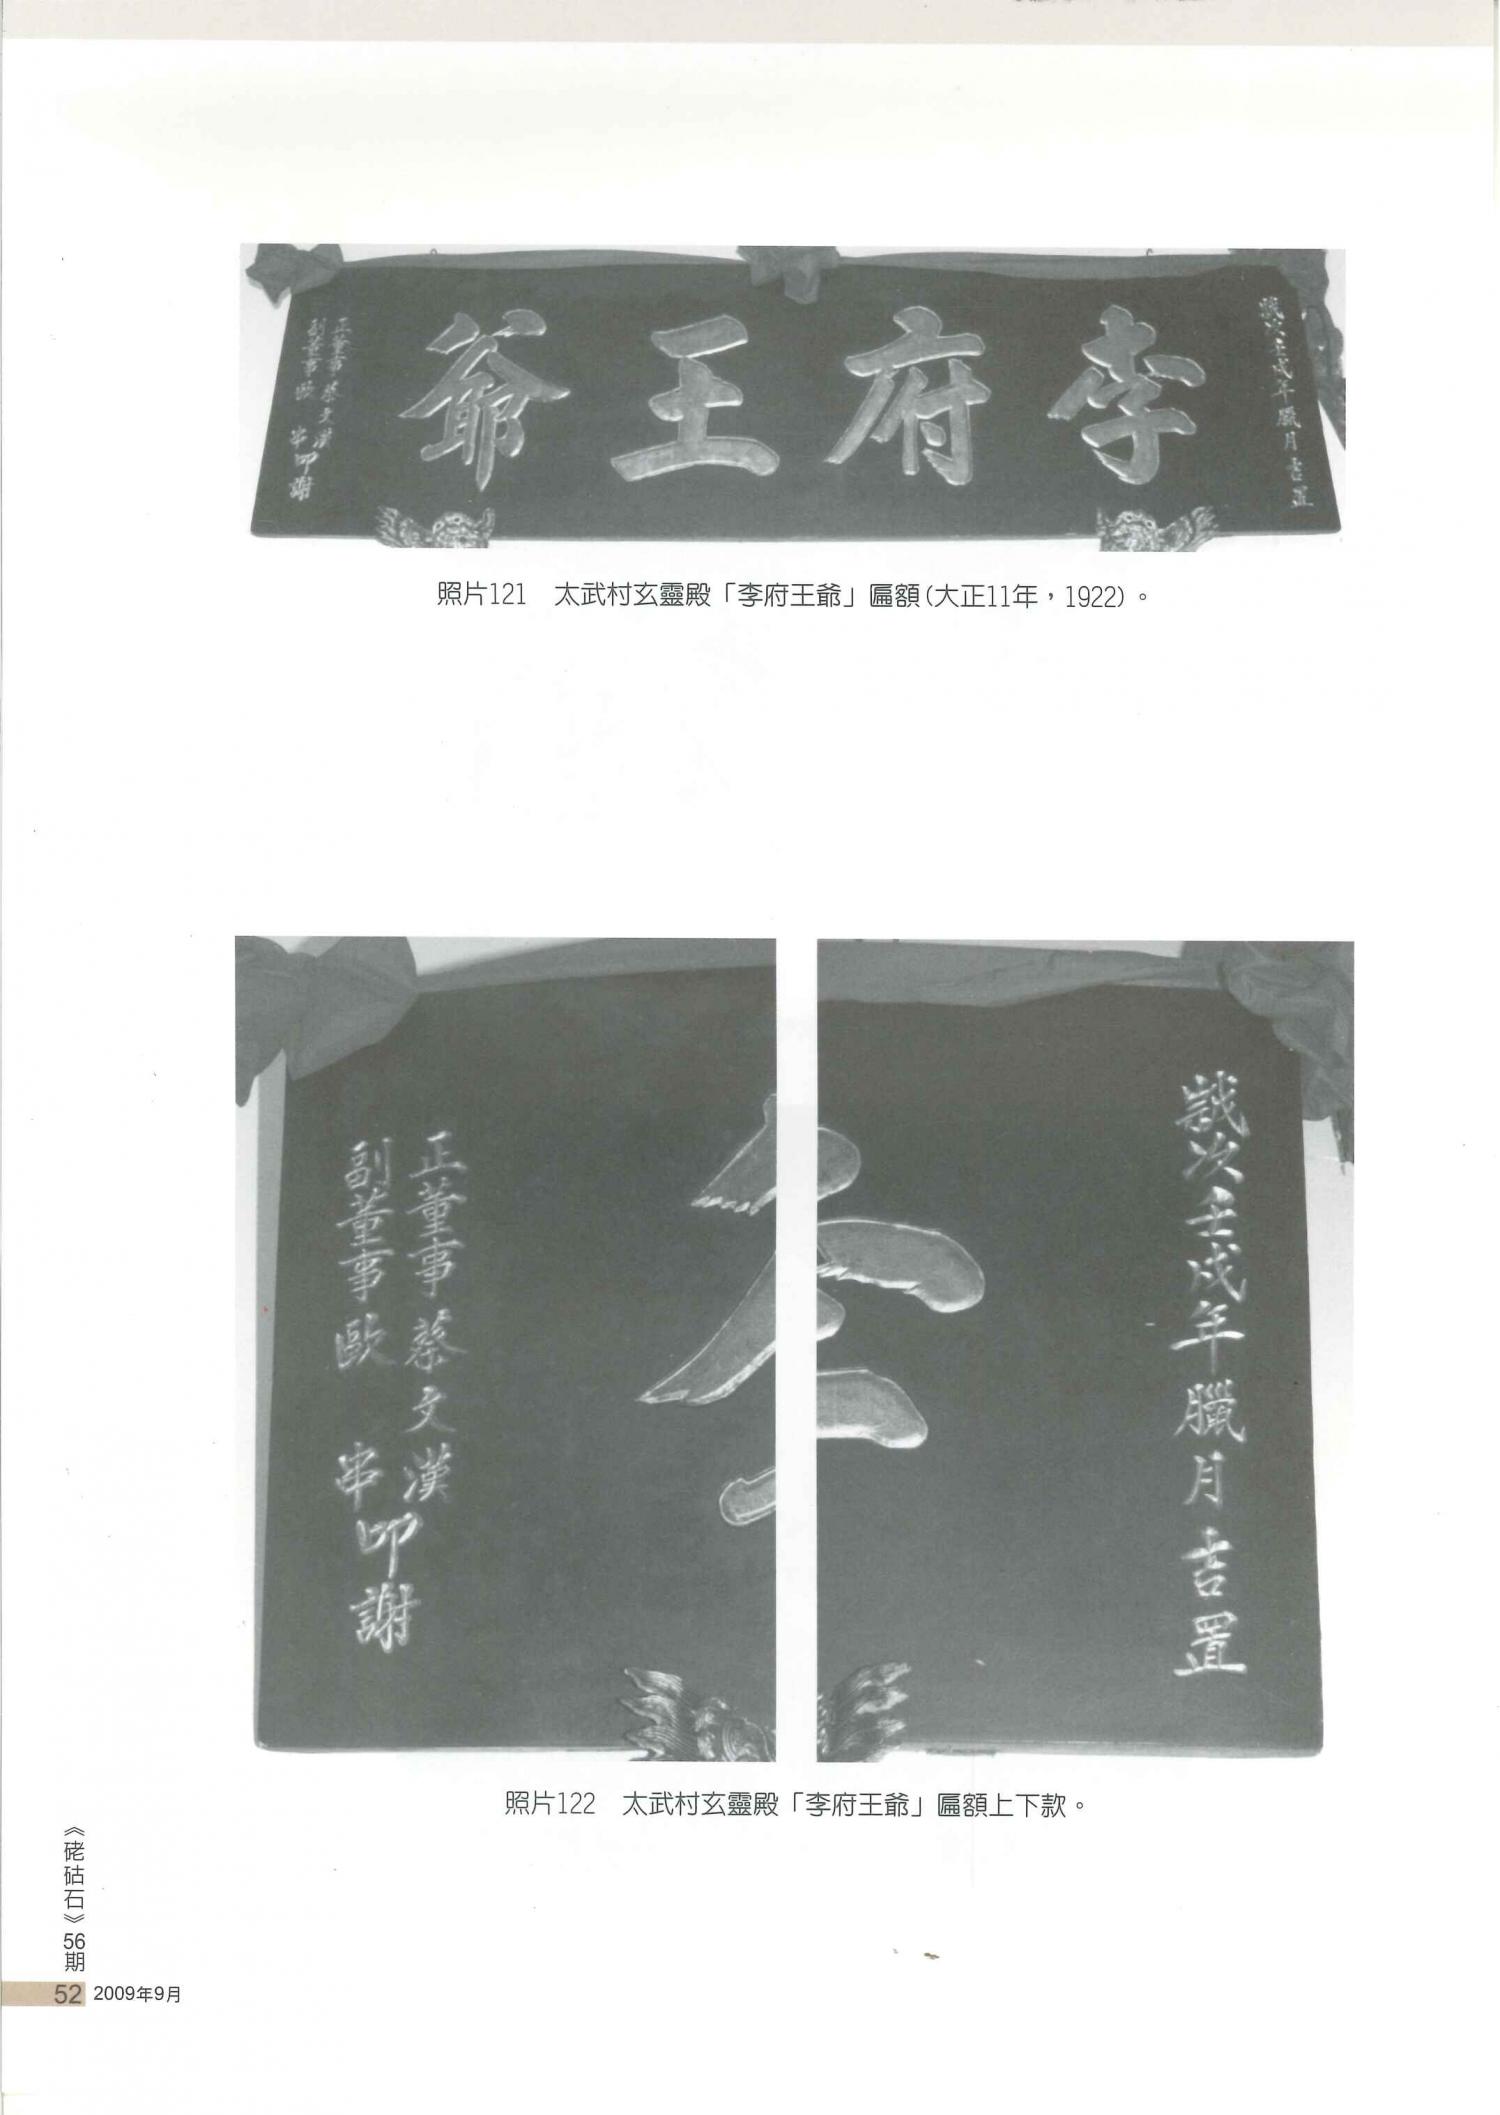 李府王爺
歲次壬戌年臘月吉置
正董事蔡文漢
副董事歐 串叩謝
照片121 太武村玄靈殿「李府王爺」匾額(大正11年，1922)。
歲次壬戌年臘月吉置
正董事蔡文漢
副董事歐 串叩謝
照片122 太武村玄靈殿「李府王爺」匾額上下款。
《硓𥑮石》56期
52 2009年9月